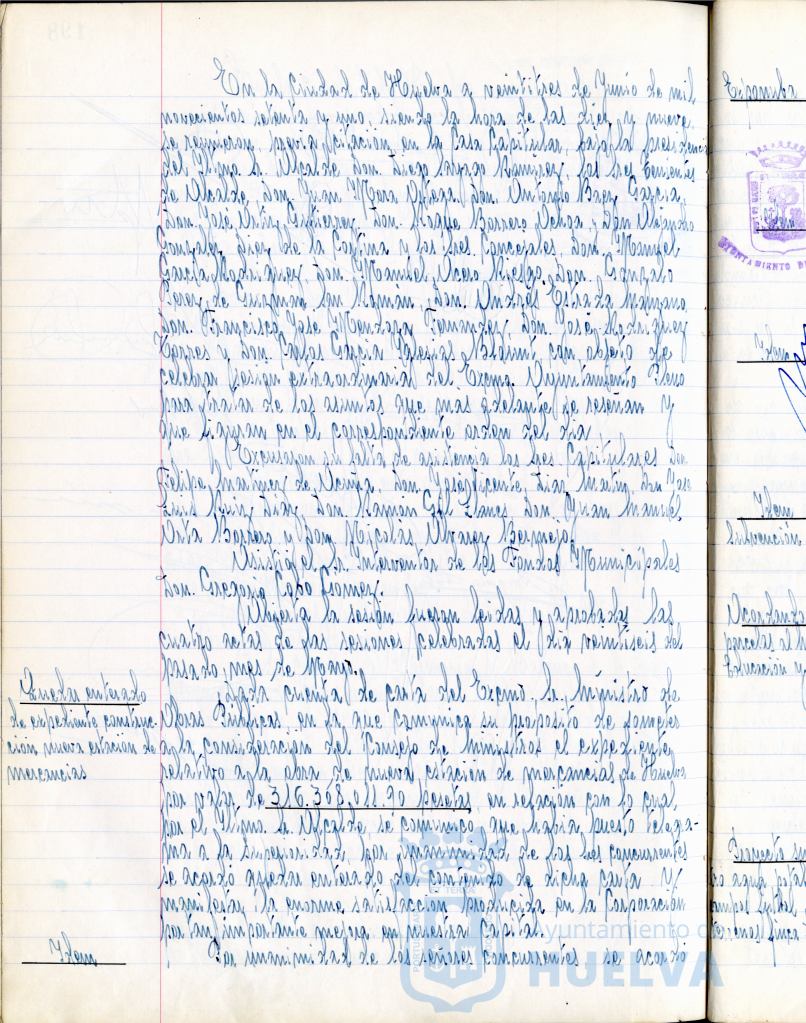 En la Ciudad de Huelva a veintitres de Junio de mil
novecientos setenta y uno, siendo la hora de las diez y nueve
se reunieron, previa citación, en la Casa Capitular, bajo la presidencia
del Iltmo. Sr. Alcalde Don. Diego Ramirez, los Sres. Tenientes
de Alcalde, Don. Juan Mora Don. Antonio Baez Garcia,
Don. José Ortiz Gutierrez, Don. Roque Barrero Ochoa, Don Alejandro
Gonzalez Diez de la Cortina y los Sres. Concejales, Don. Manuel
Garcia Rodriguez, Don. Manuel Acero Riesgo, Don. Gonzalo
Perez de Guzman San Román, Don. Andres Estrada Manzano,
Don. Francisco José Mendoza Fernandez, Don. José Dominguez
Torres y Don. Carlos Garcia Iglesias con objeto de
celebrar sesion extraordinaria del Excmo. Ayuntamiento Pleno
para tratar de los asuntos que mas adelante se reseñan y
que figuran en el correspondiente orden del dia
Excusaron su falta de asistencia los Sres. Capitulares Don
Felipe Martinez de Acuña, Don. José Vicente Diaz Martin, Don
Luis Ruiz Diaz, Don. Ramón Gil Llanes, Don. Juan Manuel
Orta Barrero y Don. Nicolás Alvarez Bermejo.
Asistió el Sr. Interventor de los Fondos Municipales
Don. Gregorio Gomez.
Abierta la sesión fueron leidas y aprobadas las
cuatro actas de las sesiones celebradas el dia veintiseis del
pasado mes de Mayo.
Quedar enterado
de expediente construc-
cion nueva estacion de
mercancias
Dada cuenta de carta del Excmo. Sr. Ministro de
Obras Publicas en la que comunica su proposito de someter
a la consideración del Consejo de Ministros el expediente
relativo a la obra de nueva estacion de mercancias de Huelva
por valor de 316.308.011.90 pesetas, en relación con lo cual
por el Iltmo. Sr. Alcalde, se comunicó que habia puesto telegra-
ma a la Superioridad, por unanimidad de los Sres concurrentes
se acordó quedar enterado del contenido de dicha carta y
manifestar la enorme satisfaccion producida en la Corporación
por tan importante mejora en nuestra Capital.
Idem
Por unanimidad de los señores concurrentes se acordo
Ayuntamiento de
HUELVA
Idem
Idem
Subvención
parcelas al
Educación y
Proyecto